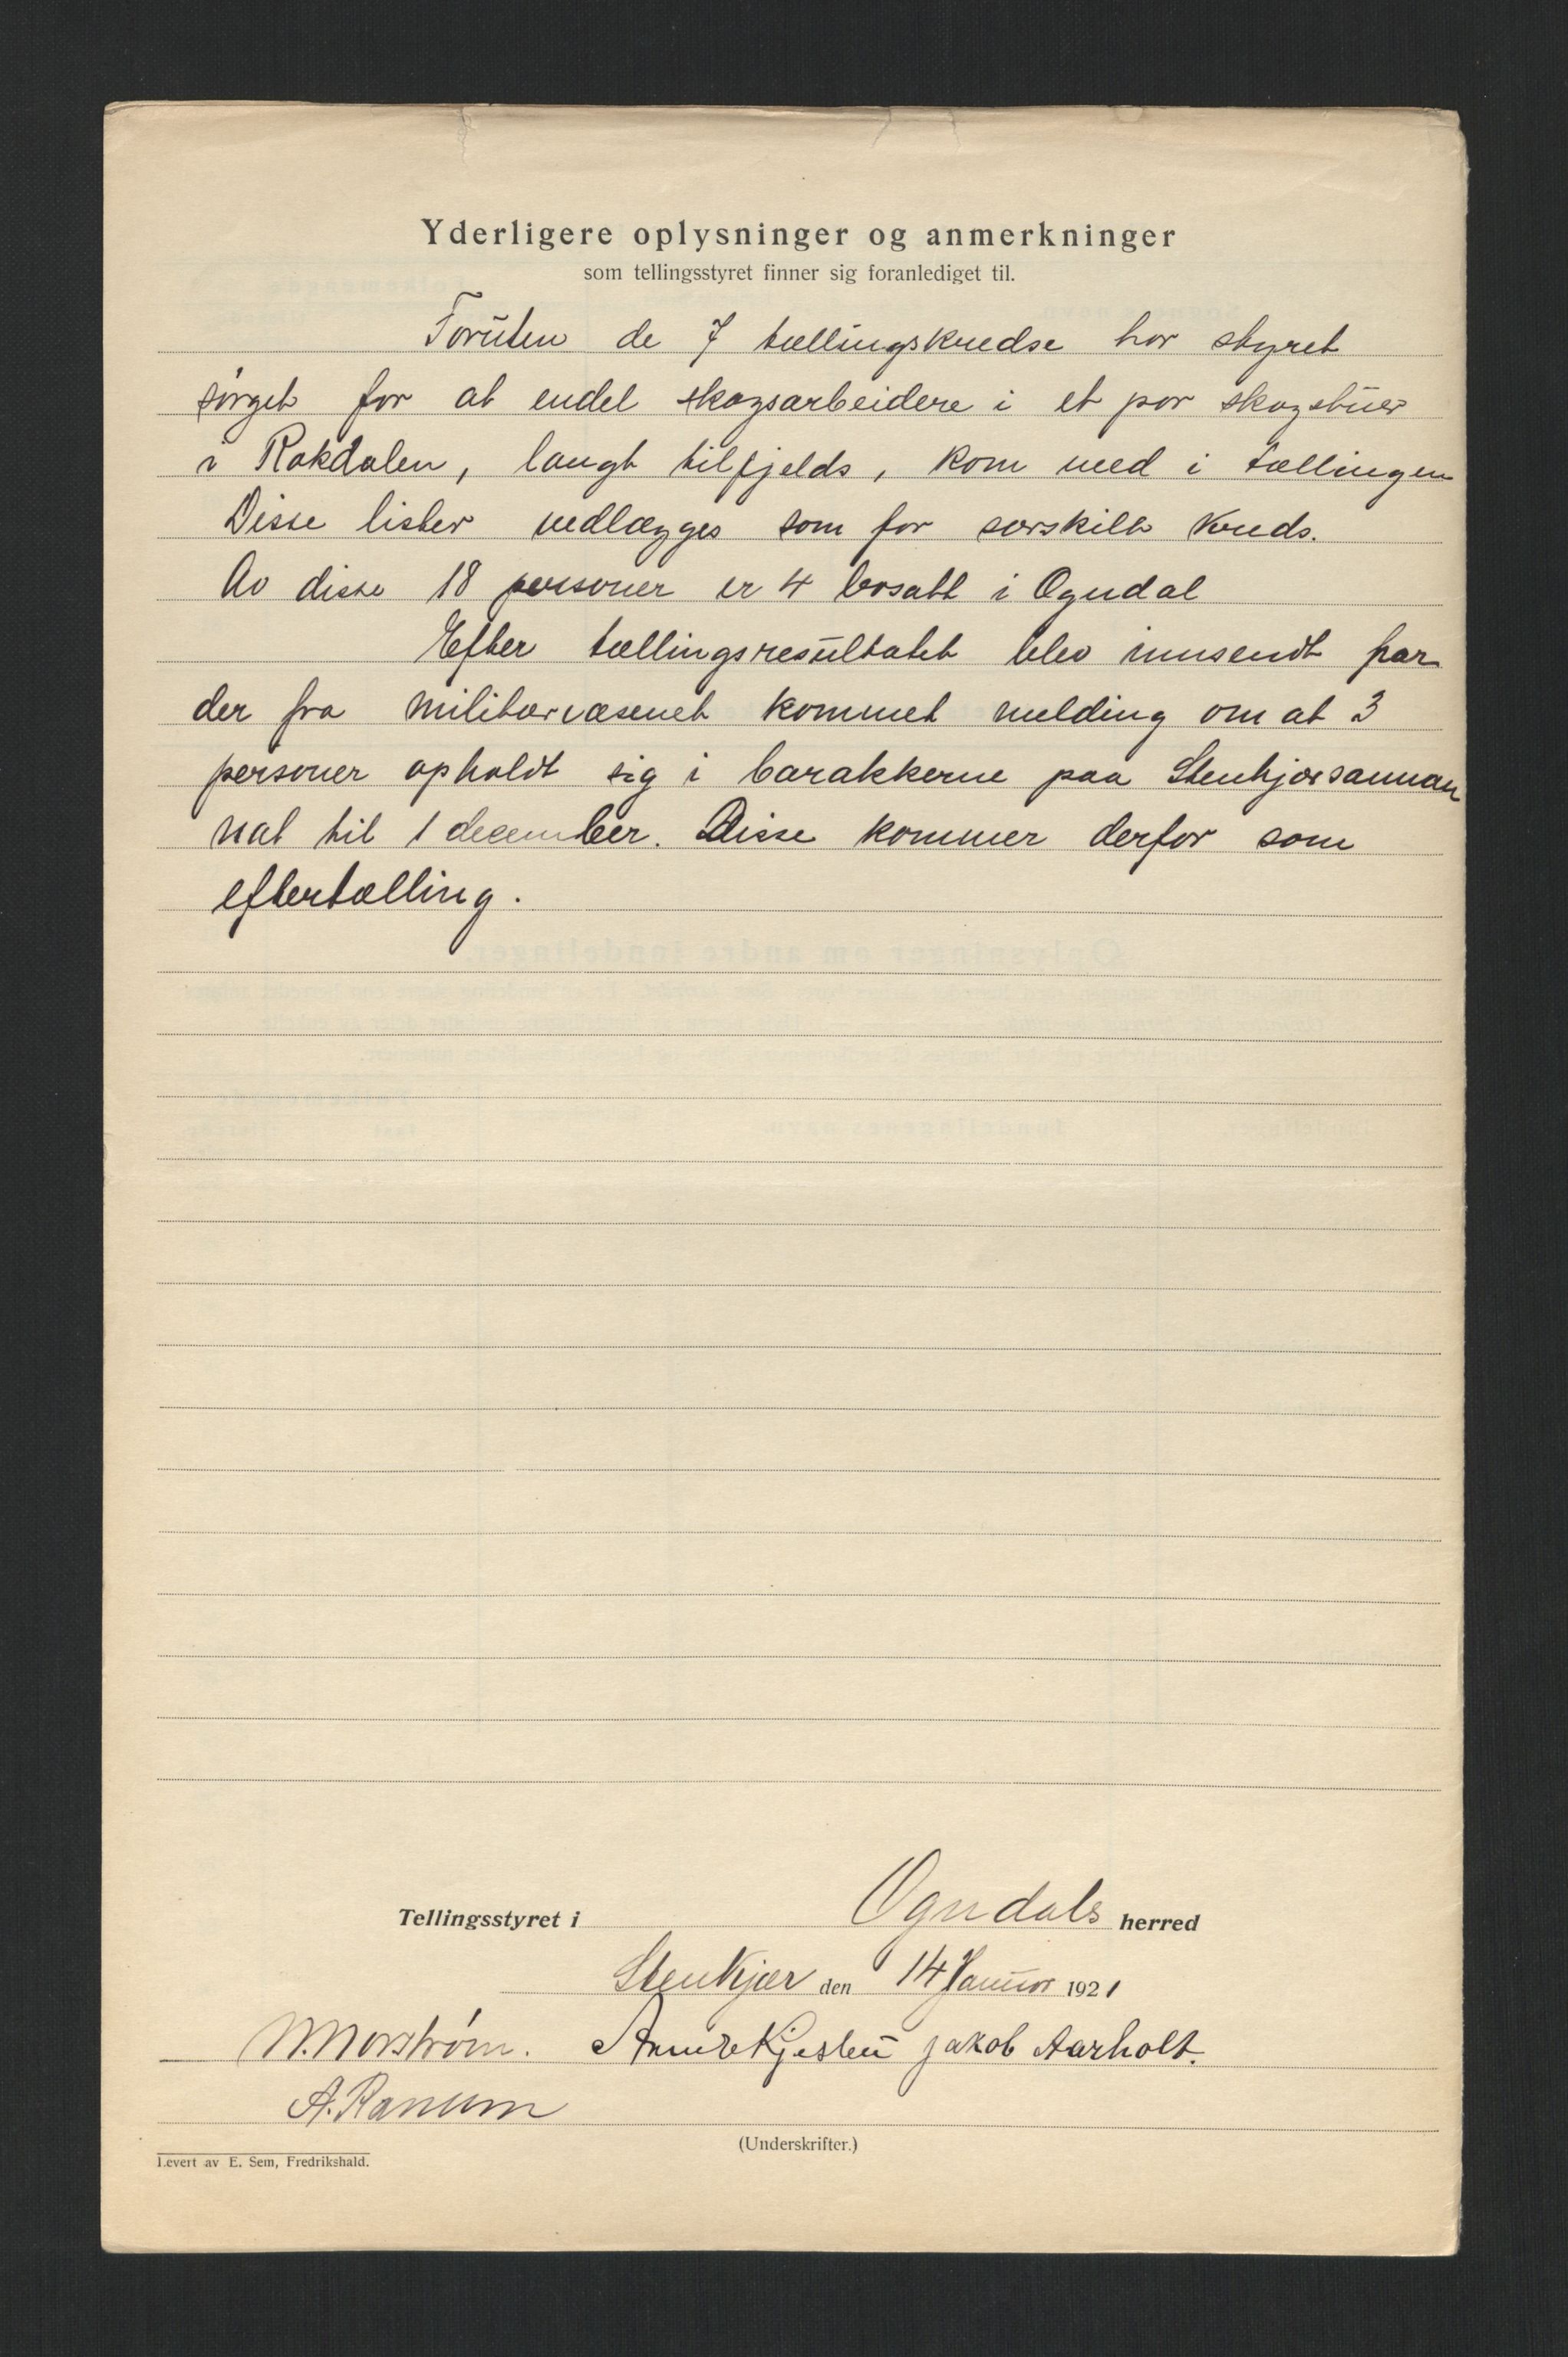 Yderligere oplysninger og anmerkninger
som tellingsstyret finner sig foranlediget til.
Foruten de 7 tællingskredse har styret
sørget for at endel skogsarbeidere i et par skogstuer
i Rokdalen, langt tilfjelds, kom med i tællingen
Disse lister vedlægges som for særskilt kreds.
Av disse 18 personer er 4 bosatt i Ogndal
Efter tællingsresultatet blev innsendt har
der fra militærvæsenet kommet melding om at 3
personer opholdt sig i barakkerne paa Stenkjærsannan
nat til 1 december. Disse kommer derfor som
eftertælling.
Tellingsstyret i Ogndals herred
Stenkjær den 14 Januar 1921
N. Norstrøm. Kjesbu Jakob Aarholt.
A. Ranum
(Underskrifter.)
Levert av E. Sem, Fredrikshald.